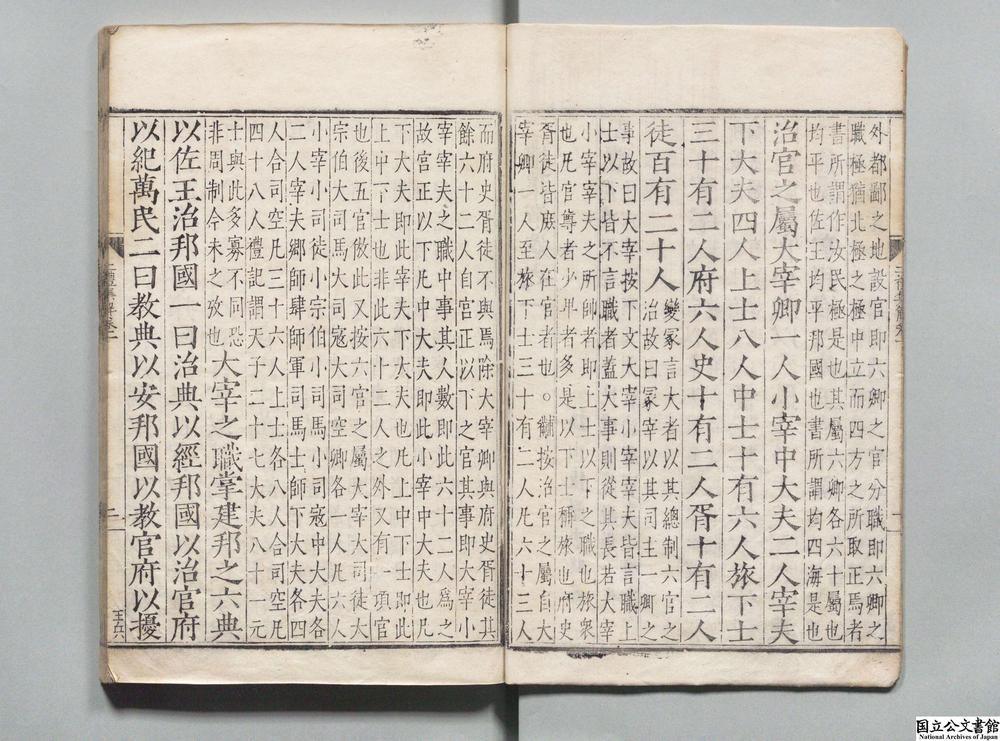 外都鄙之地設官即六卿之官分職即六卿之
職極猶北極之極中立而四方之所取正焉者
書所謂作汝民極是也其屬六卿各六十屬也
均平也佐王均平邦國也書所謂均四海是也
治官之屬大宰卿一人小宰中大夫二人宰夫
下大夫四人上士八人中士十有六人旅下士
三十有二人府六人史十有二人胥十有二人
徒百有二十人
變冢言大者以其總制六官之
治故曰冢宰以其司主一卿之
事故曰大宰按下文大宰小宰宰夫皆言職上
士以下皆不言職者蓋大事則從其長若大宰
小宰宰夫之所帥者即上士以下之職也旅衆
也凡官尊者少卑者多是以下士稱旅也府史
胥徒皆庶人在官者也。
按治官之屬自大
宰卿一人至旅下士三十有二人凡六十三人
而府史胥徒不與焉除大宰卿與府史胥徒其
餘六十二人自官正以下之官其事即大宰小
宰宰夫之職中事其人數即此六十二人為之
故官正以下凡中大夫即此小宰中大夫也凡
下大夫即此宰夫下大夫也凡上中下士即此
上中下士也非此六十二人之外又有一項官
也後五官倣此又按六官之屬大宰大司徒大
宗伯大司馬大司寇大司空卿各一人凡六人
小宰小司徒小宗伯小司馬小司寇中大夫各
二人宰夫鄉師肆師軍司馬士師下大夫各四
人合司空凡三十六人上士各八人合司空凡
四十八人禮記謂天子二十七大夫八十一元
士與此多寡不同恐
非周制今未之攷也
大宰之職掌建邦之六典
以佐王治邦國一曰治典以經邦國以治官府
以紀萬民二曰教典以安邦國以教官府以擾
二
国立公文書館
National Archives of Japan